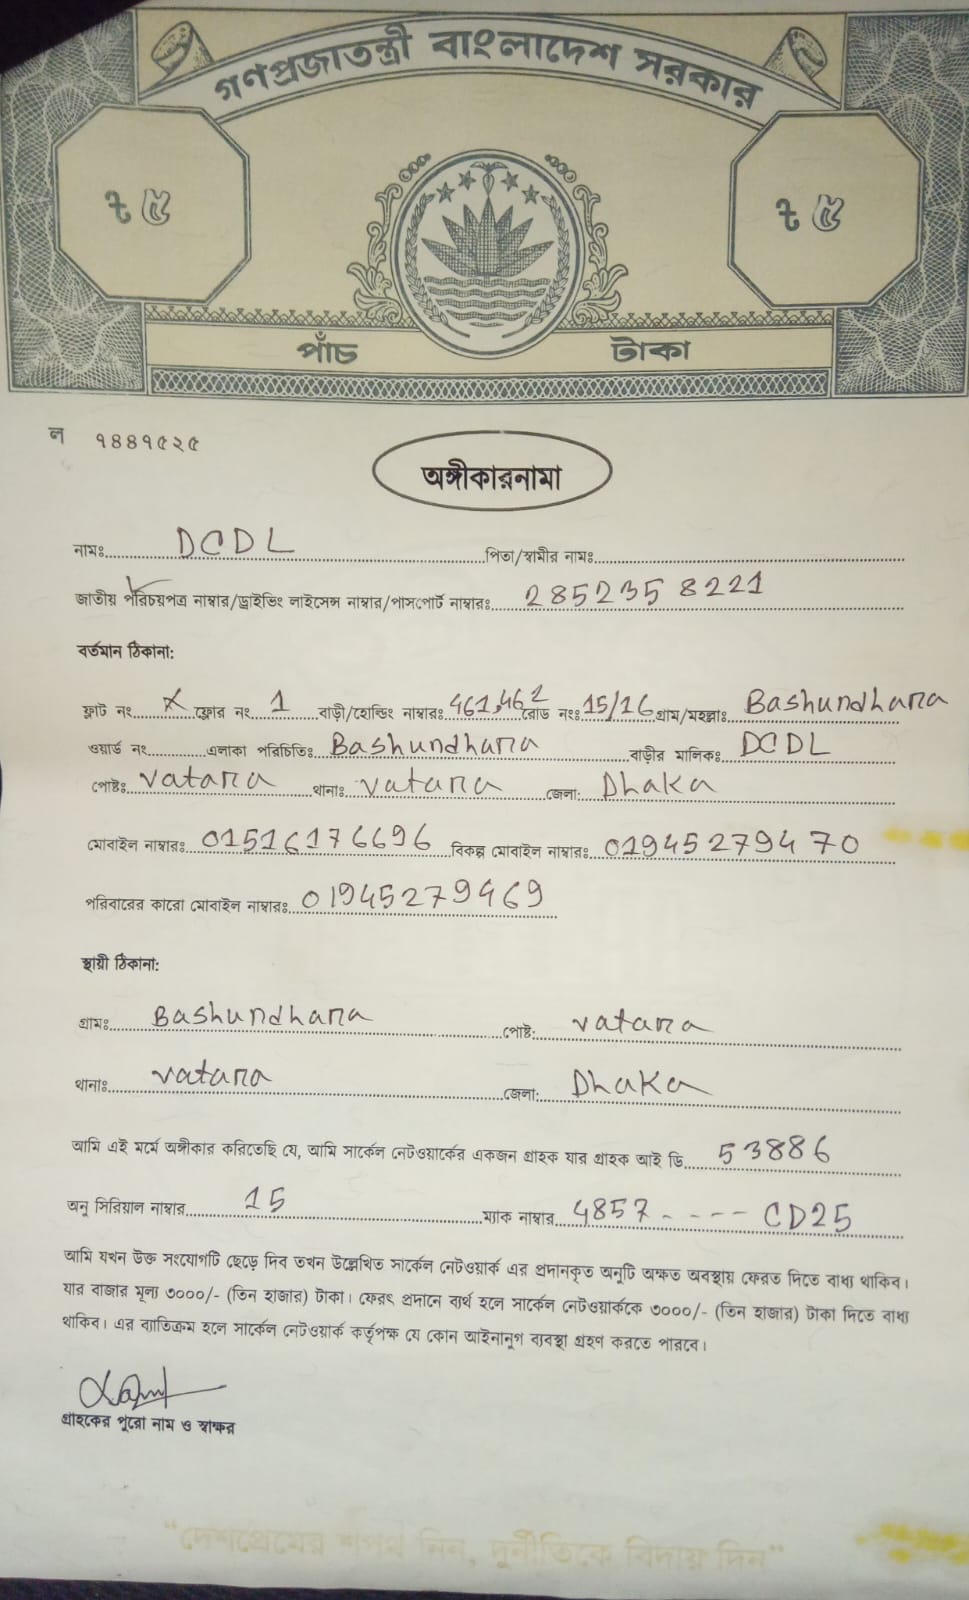 গণপ্রজাতন্ত্রী বাংলাদেশ সরকার
৳ ৫ ৳ ৫
পাঁচ টাকা
ল ৭৪৪৭৫২৫
অঙ্গীকারনামা
নামঃ DCDL পিতা/স্বামীর নামঃ
জাতীয় পরিচয়পত্র নাম্বার/ড্রাইভিং লাইসেন্স নাম্বার/পাসপোর্ট নাম্বারঃ 2852358221
বর্তমান ঠিকানা:
ফ্লাট নং X ফ্লোর নং 1 বাড়ী/হোল্ডিং নাম্বারঃ 461,462 রোড নংঃ 15/16 গ্রাম/মহল্লাঃ Bashundhara
ওয়ার্ড নং এলাকা পরিচিতিঃ Bashundhara বাড়ীর মালিকঃ DCDL
পোষ্টঃ vatara থানাঃ vatara জেলা: Dhaka
মোবাইল নাম্বারঃ 01516176696 বিকল্প মোবাইল নাম্বারঃ 01945279470
পরিবারের কারো মোবাইল নাম্বারঃ 01945279469
স্থায়ী ঠিকানা:
গ্রামঃ Bashundhara পোষ্ট: vatara
থানাঃ vatara জেলা: Dhaka
আমি এই মর্মে অঙ্গীকার করিতেছি যে, আমি সার্কেল নেটওয়ার্কের একজন গ্রাহক যার গ্রাহক আই ডি 53886
অনু সিরিয়াল নাম্বার 15 ম্যাক নাম্বার 4857---- CD25
আমি যখন উক্ত সংযোগটি ছেড়ে দিব তখন উল্লেখিত সার্কেল নেটওয়ার্ক এর প্রদানকৃত অনুটি অক্ষত অবস্থায় ফেরত দিতে বাধ্য থাকিব।
যার বাজার মূল্য ৩০০০/- (তিন হাজার) টাকা। ফেরৎ প্রদানে ব্যর্থ হলে সার্কেল নেটওয়ার্ককে ৩০০০/- (তিন হাজার) টাকা দিতে বাধ্য
থাকিব। এর ব্যতিক্রম হলে সার্কেল নেটওয়ার্ক কর্তৃপক্ষ যে কোন আইনানুগ ব্যবস্থা গ্রহণ করতে পারবে।
গ্রাহকের পুরো নাম ও স্বাক্ষর
"দেশপ্রেমের শপথ নিন, দুর্নীতিকে বিদায় দিন"